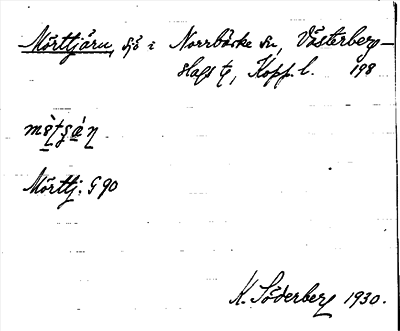 Mörttjärn, sjö i Norrbärke sn, Västerbergs-
slags tg, Kopp. l. 198
Mörttj. G 90
K. Söderberg 1930.